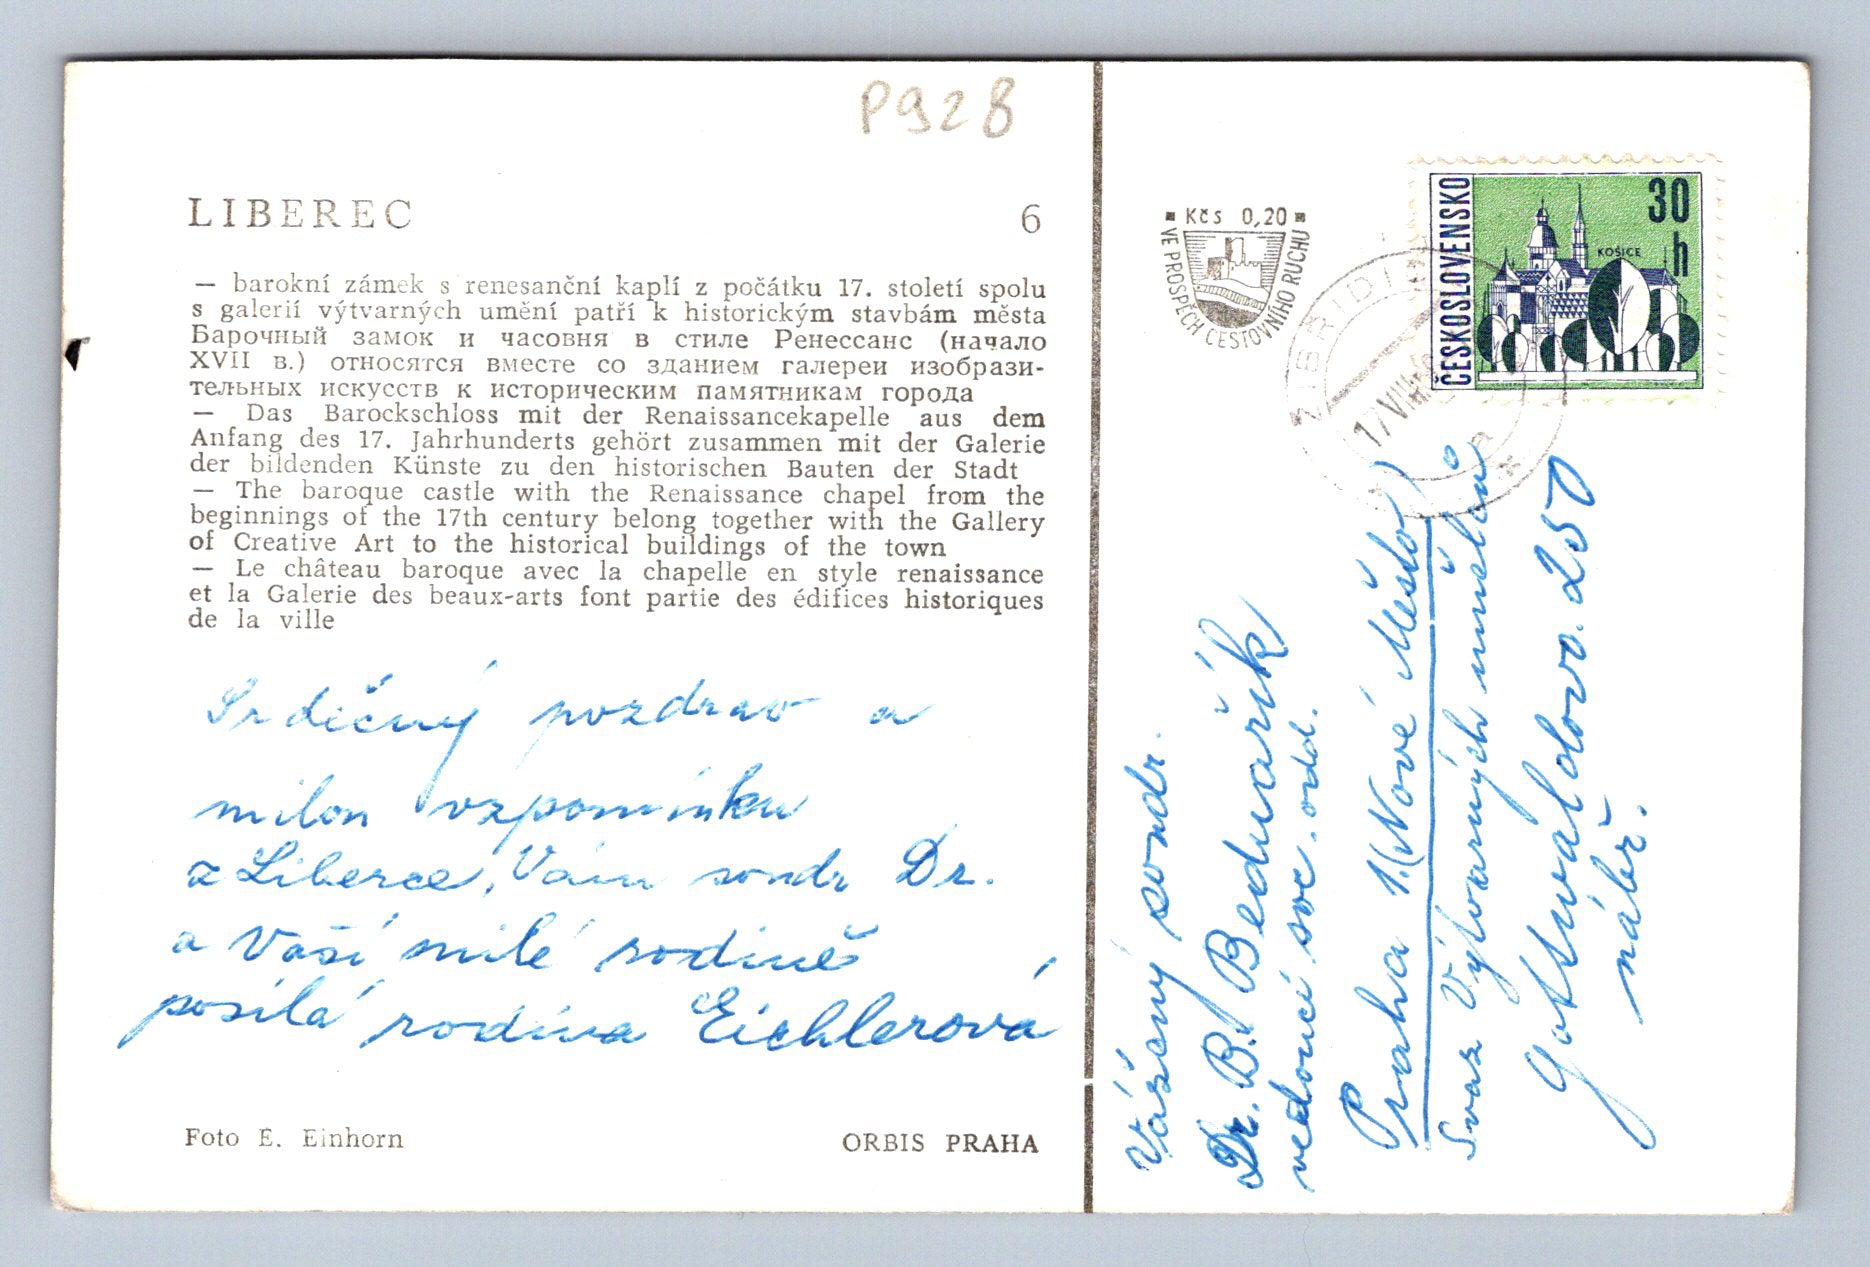 P928
LIBEREC 6
— barokní zámek s renesanční kaplí z počátku 17. století spolu
s galerií výtvarných umění patří k historickým stavbám města
Барочный замок и часовня в стиле Ренессанс (начало
XVII в.) относятся вместе со зданием галереи изобрази-
тельных искусств к историческим памятникам города
— Das Barockschloss mit der Renaissancekapelle aus dem
Anfang des 17. Jahrhunderts gehört zusammen mit der Galerie
der bildenden Künste zu den historischen Bauten der Stadt
— The baroque castle with the Renaissance chapel from the
beginnings of the 17th century belong together with the Gallery
of Creative Art to the historical buildings of the town
— Le château baroque avec la chapelle en style renaissance
et la Galerie des beaux-arts font partie des édifices historiques
de la ville
Srdičný pozdrav a
milou vzpomínku
z Liberce, Vám soudr Dr.
a Vaší milé rodině
posílá rodina Eichlerová
Foto E. Einhorn
ORBIS PRAHA
Kčs 0,20
VE PROSPĚCH CESTOVNÍHO RUCHU
ČESKOSLOVENSKO
30
h
KOŠICE
17.VIII
Vážený soudr.
Dr. B. Bednařík
vedoucí soc. odd.
Praha 1. (Nové Město)
Svaz Výtvarných umělců
Gottwaldovo. 250
nábř.